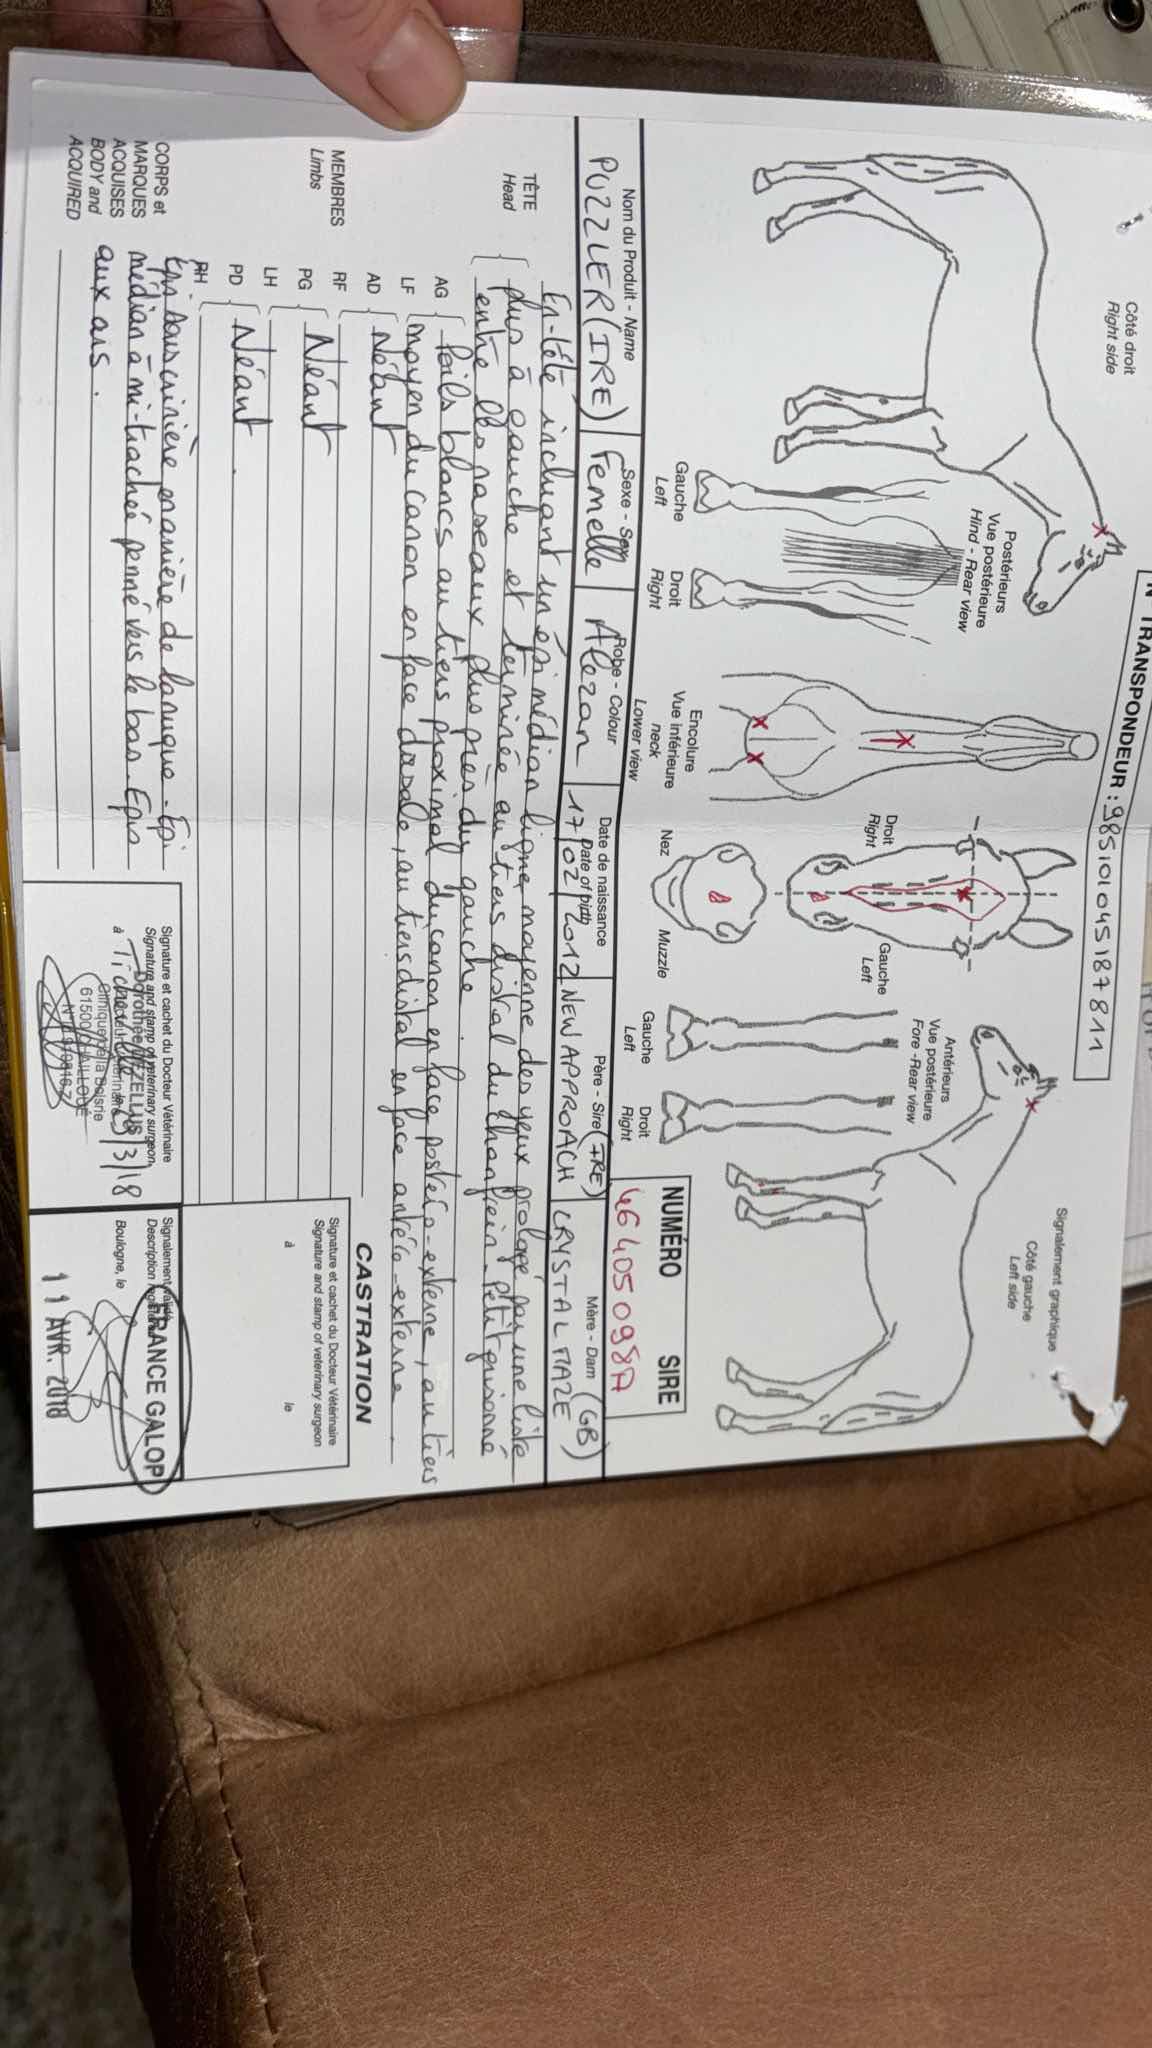 N° TRANSPONDEUR : 985101045187811
Signalement graphique
Côté droit
Right side
Côté gauche
Left side
Postérieurs
Vue postérieure
Hind - Rear view
Gauche
Left
Droit
Right
Encolure
Vue inférieure
neck
Lower view
Droit
Right
Gauche
Left
Nez
Muzzle
Antérieurs
Vue postérieure
Fore - Rear view
Gauche
Left
Droit
Right
NUMÉRO SIRE
46405098A
Nom du Produit - Name
Sexe - Sex
Robe - Colour
Date de naissance
Date of birth
Père - Sire (IRE)
Mère - Dam (GB)
PUZZLER (IRE) Femelle Alezan 17/02/2012 NEW APPROACH CRYSTAL MAZE
TÊTE
Head
En-tête incluant un épi médian ligne moyenne des yeux prolongé par une liste
plus à gauche et terminée au tiers distal du chanfrein. Petit grisonné
entre les naseaux plus près du gauche.
MEMBRES
Limbs
AG
LF
Poils blancs au tiers proximal du canon en face postéro-externe, au tiers
moyen du canon en face dorsale, au tiers distal en face antéro-externe
AD
RF
Néant
PG
LH
Néant
PD
RH
Néant.
CORPS et
MARQUES
ACQUISES
BODY and
ACQUIRED
Epi sous crinière en arrière de la nuque. Epi
médian à mi-trachée penné vers le bas. Epis
aux ars.
CASTRATION
Signature et cachet du Docteur Vétérinaire
Signature and stamp of veterinary surgeon
à
le
Signature et cachet du Docteur Vétérinaire
Signature and stamp of veterinary surgeon
Dorothée
à
Clinique de la Boisrie
61500 CHAILLOUÉ
3/18
Signalement validé
Boulogne, le
FRANCE GALOP
11 AVR. 2018